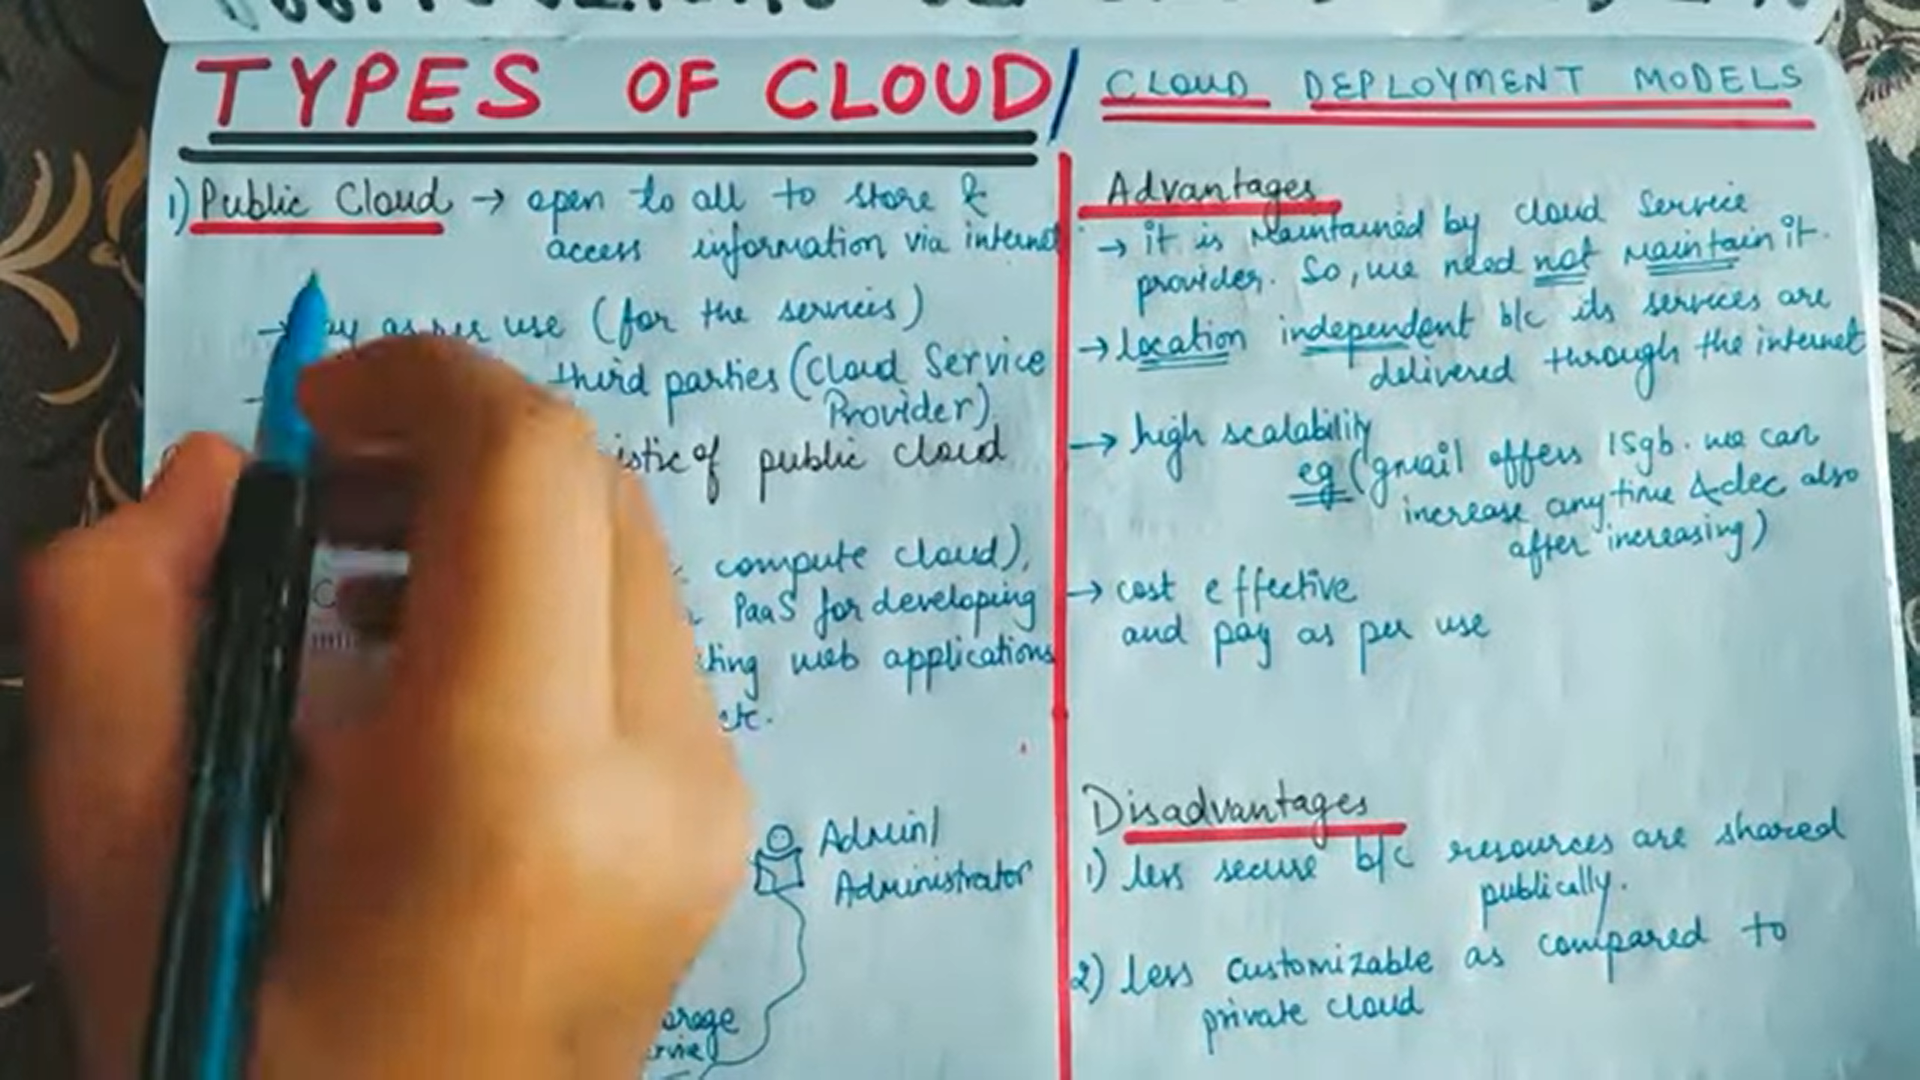 TYPES OF CLOUD/ CLOUD DEPLOYMENT MODELS
1) Public Cloud → open to all to store &
access information via internet
→ as per use (for the services)
third parties (Cloud Service
Provider)
of public cloud
compute cloud),
PaaS for developing
web applications
Admin/
Administrator
Advantages
→ it is Maintained by cloud Service
provider. So, we need not maintain it.
→ location independent b/c its services are
delivered through the internet
→ high scalability
eg (gmail offers 15gb. we can
increase anytime & dec also
after increasing)
→ cost effective
and pay as per use
Disadvantages
1) less secure b/c resources are shared
publically.
2) less customizable as compared to
private cloud